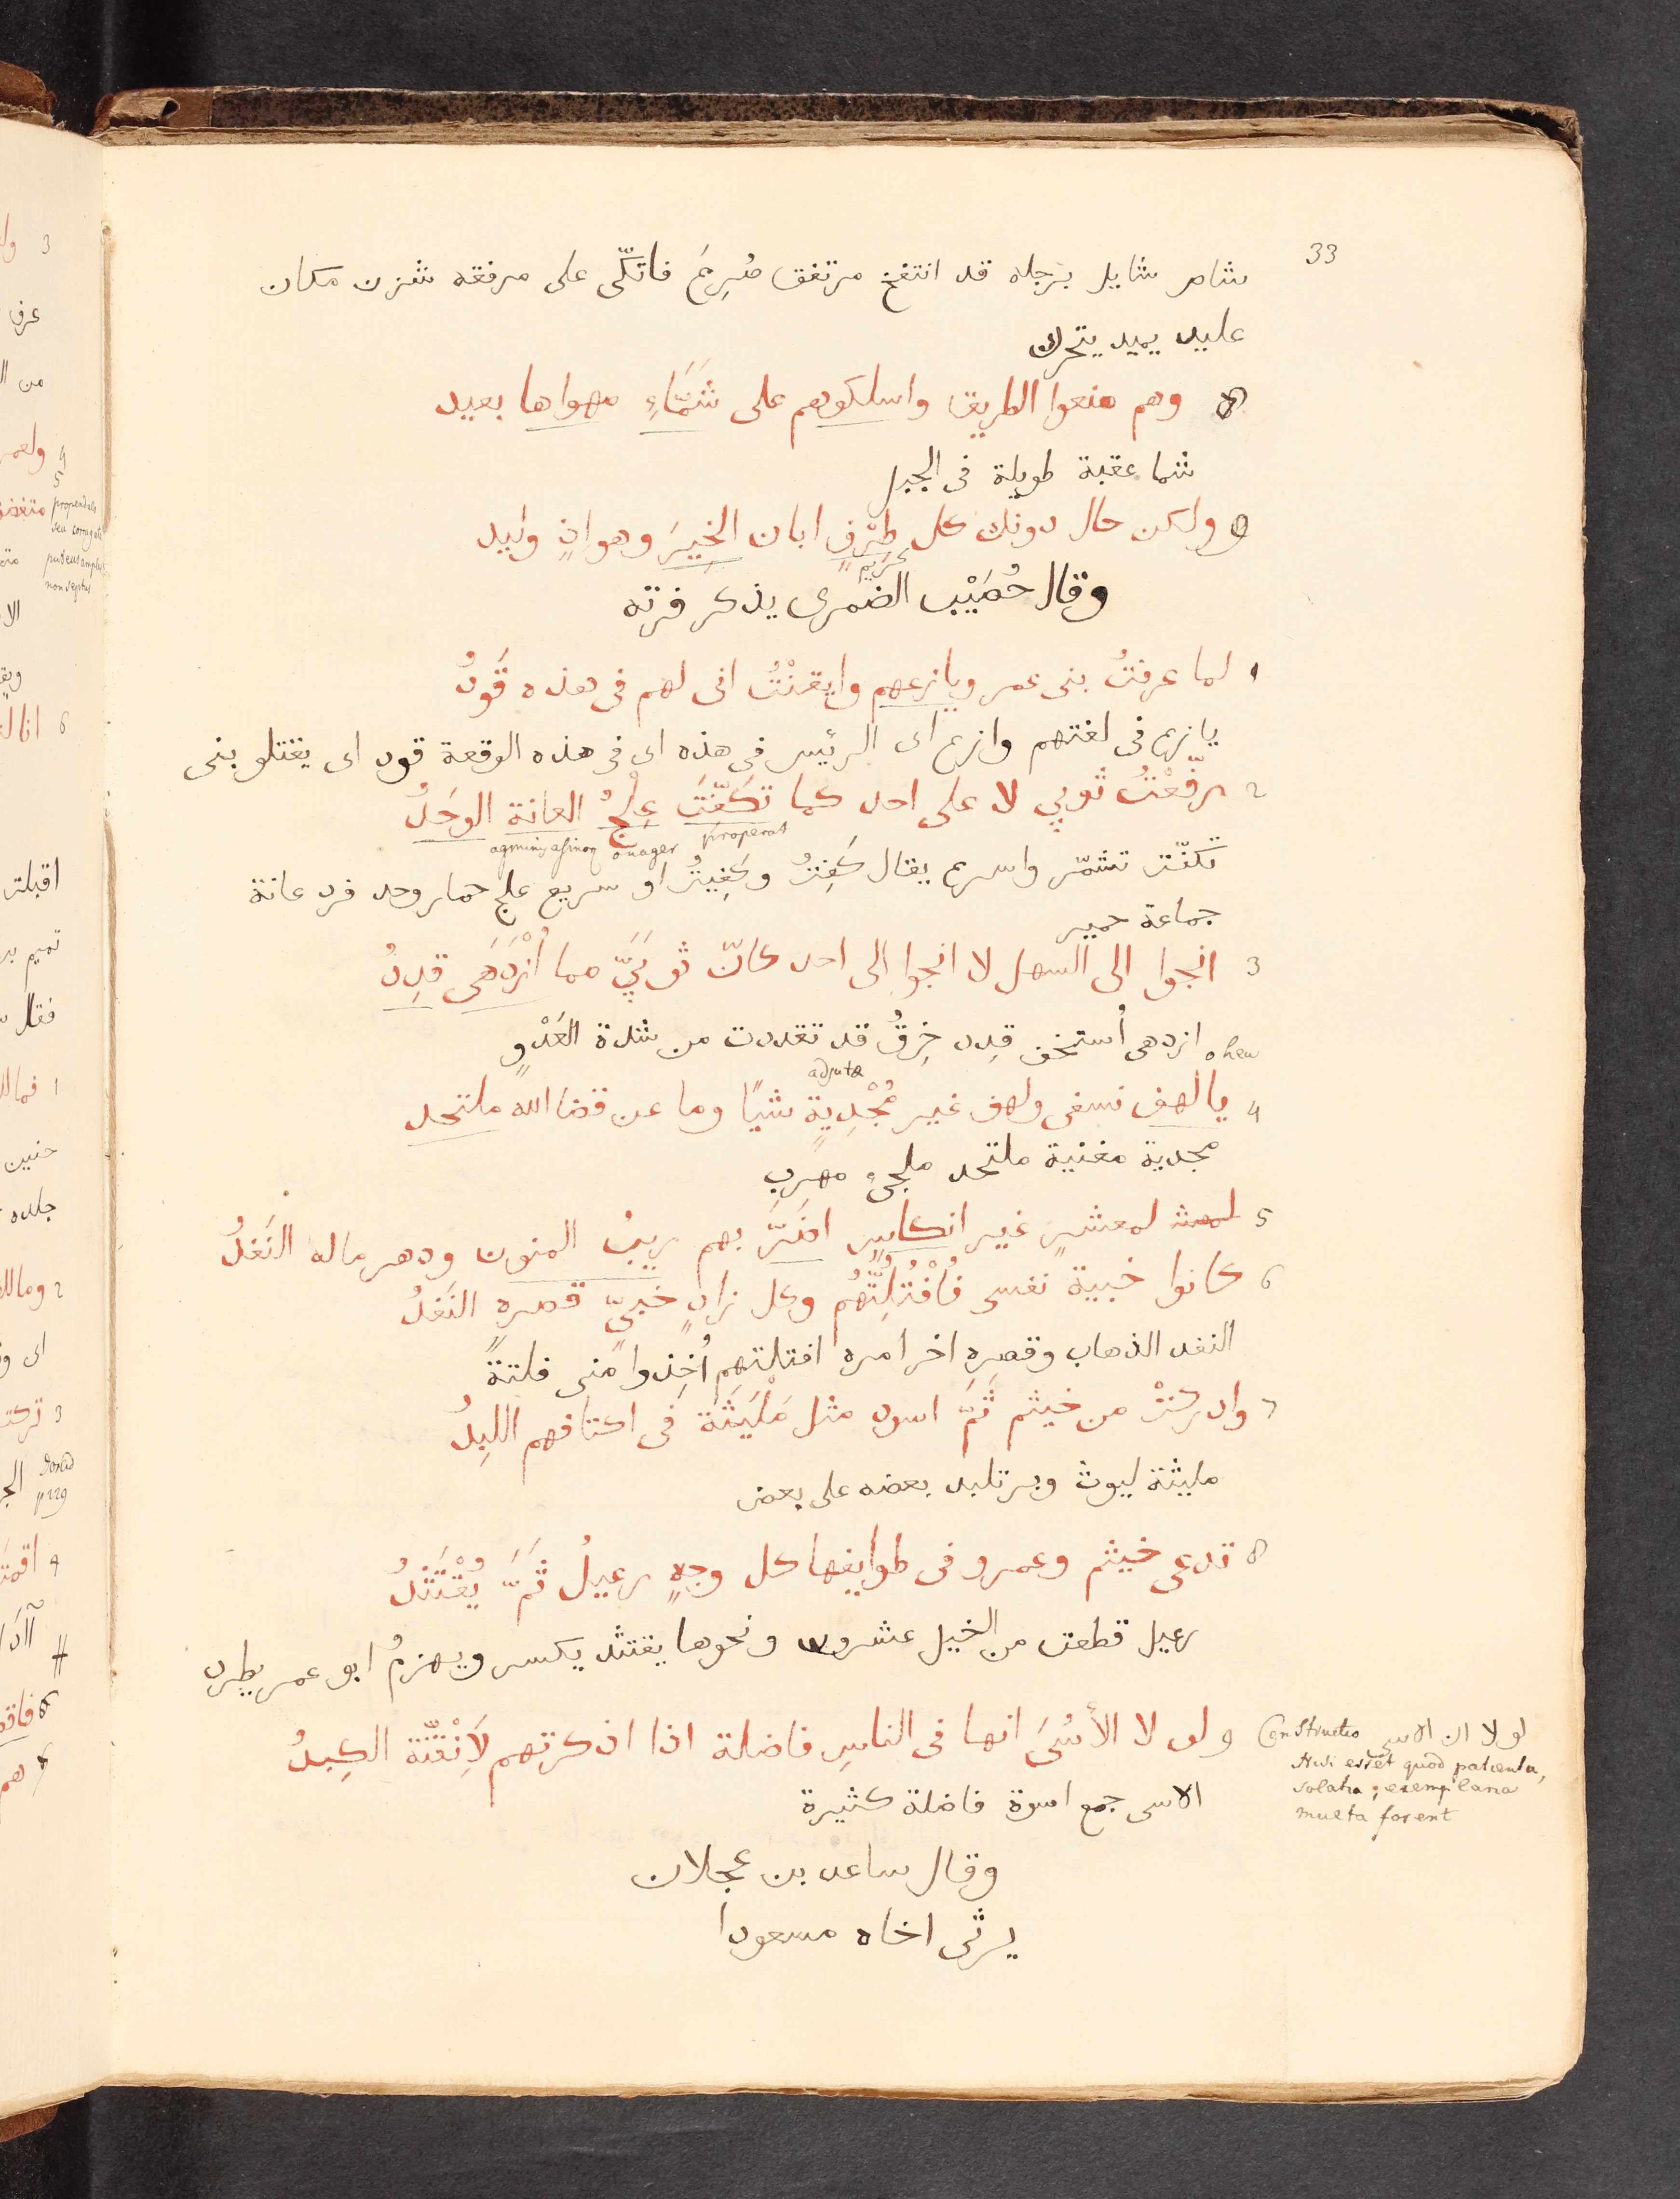 33
شاصر شايل برجله قد انتفخ مرتفق صُرِعَ فاتكّى على مرفقه شزن مكان
عليه يميد يتحرك
8 وهم منعوا الطريق واسلكوهم على شَمَّاءِ مهواها بعيد
شما عقبة طويلة فى الجبل
9 ولكن حال دونك كل طِرْفٍ ابان الخِيرَ وهو اذٍ وليد
كريم
وقال حُصَيْب الضمرى يذكر فرته
1 لما عرفتُ بنى عمر ويازعهم وايقنْتُ انى لهم فى هذه قَوَدُ
يازع فى لغتهم وازع اى الرئيس فى هذه اى فى هذه الوقعة قود اى يقتلو بنى
2 رفّعْتُ ثوبي لا على احد كما تكَفَّتَ عِلْجُ العانة الوحَدُ
properat onager agminis asinorum
تكفّت تشمّر واسرع يقال كَفِتٌ وكَفِيتٌ او سريع علج حمار وحد فرد عانة
جماعة حمير
3 انجوا الى السهل لا انجوا الى احد كانّ ثوبَيَّ مما اُزْدَهَى قِدِدُ
ازدهى اُستخف قِدد خِرقُ قد تقددت من شدة العَدْوِ
o heu
adjuta
4 يا لهف نسفى ولهف غير مُجْدِيةٍ شيًا وما عن قضا الله ملتحد
مجدية مغنية ملتحد ملجىء مهرب
5 لمعشرٍ غير انكاسٍ اضَرَّ بهم ريبُ المنون ودهر ماله النَفَدُ
6 كانوا خبية نفسى فاُفْتُلِتُّهُم وكل زادٍ خبيٍّ قصره النَفَدُ
النفد الذهاب وقصره اخر امره افتلتهم اُخِذوا منى فلتةً
7 وادركتْ من خيثم ثَمَّ اسود مثل مَلْيَثَة فى اكتافهم اللبِدُ
مليثة ليوث وبر تلبد بعضه على بعض
8 تدعى خيثم وعمرو فى طوايفها كل وجهٍ رعيلُ ثَمَّ يُقْتَثَدُ
رعيل قطعة من الخيل عشرون ونحوها يقتثد يكسر ويهزمُ ابو عمر يطرد
9 ولو لا الأسَى انها فى الناس فاضلة اذا اذكرتهم لَانْفَتَّة الكِبِدُ
لو لا ان الاسى Constructio
Nisi esset quod patientia,
solatia; exemplaria
multa forent
الاسى جمع اسوة فاضلة كثيرة
وقال ساعد بن عجلان
يرثى اخاه مسعودا